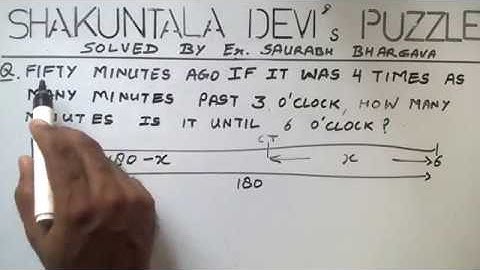 SHAKUNTALA DEVI's PUZZLE
SOLVED BY Er. SAURABH BHARGAVA
Q. FIFTY MINUTES AGO IF IT WAS 4 TIMES AS
MANY MINUTES PAST 3 O'CLOCK, HOW MANY
MINUTES IS IT UNTIL 6 O'CLOCK?
CT
180-x x 6
180